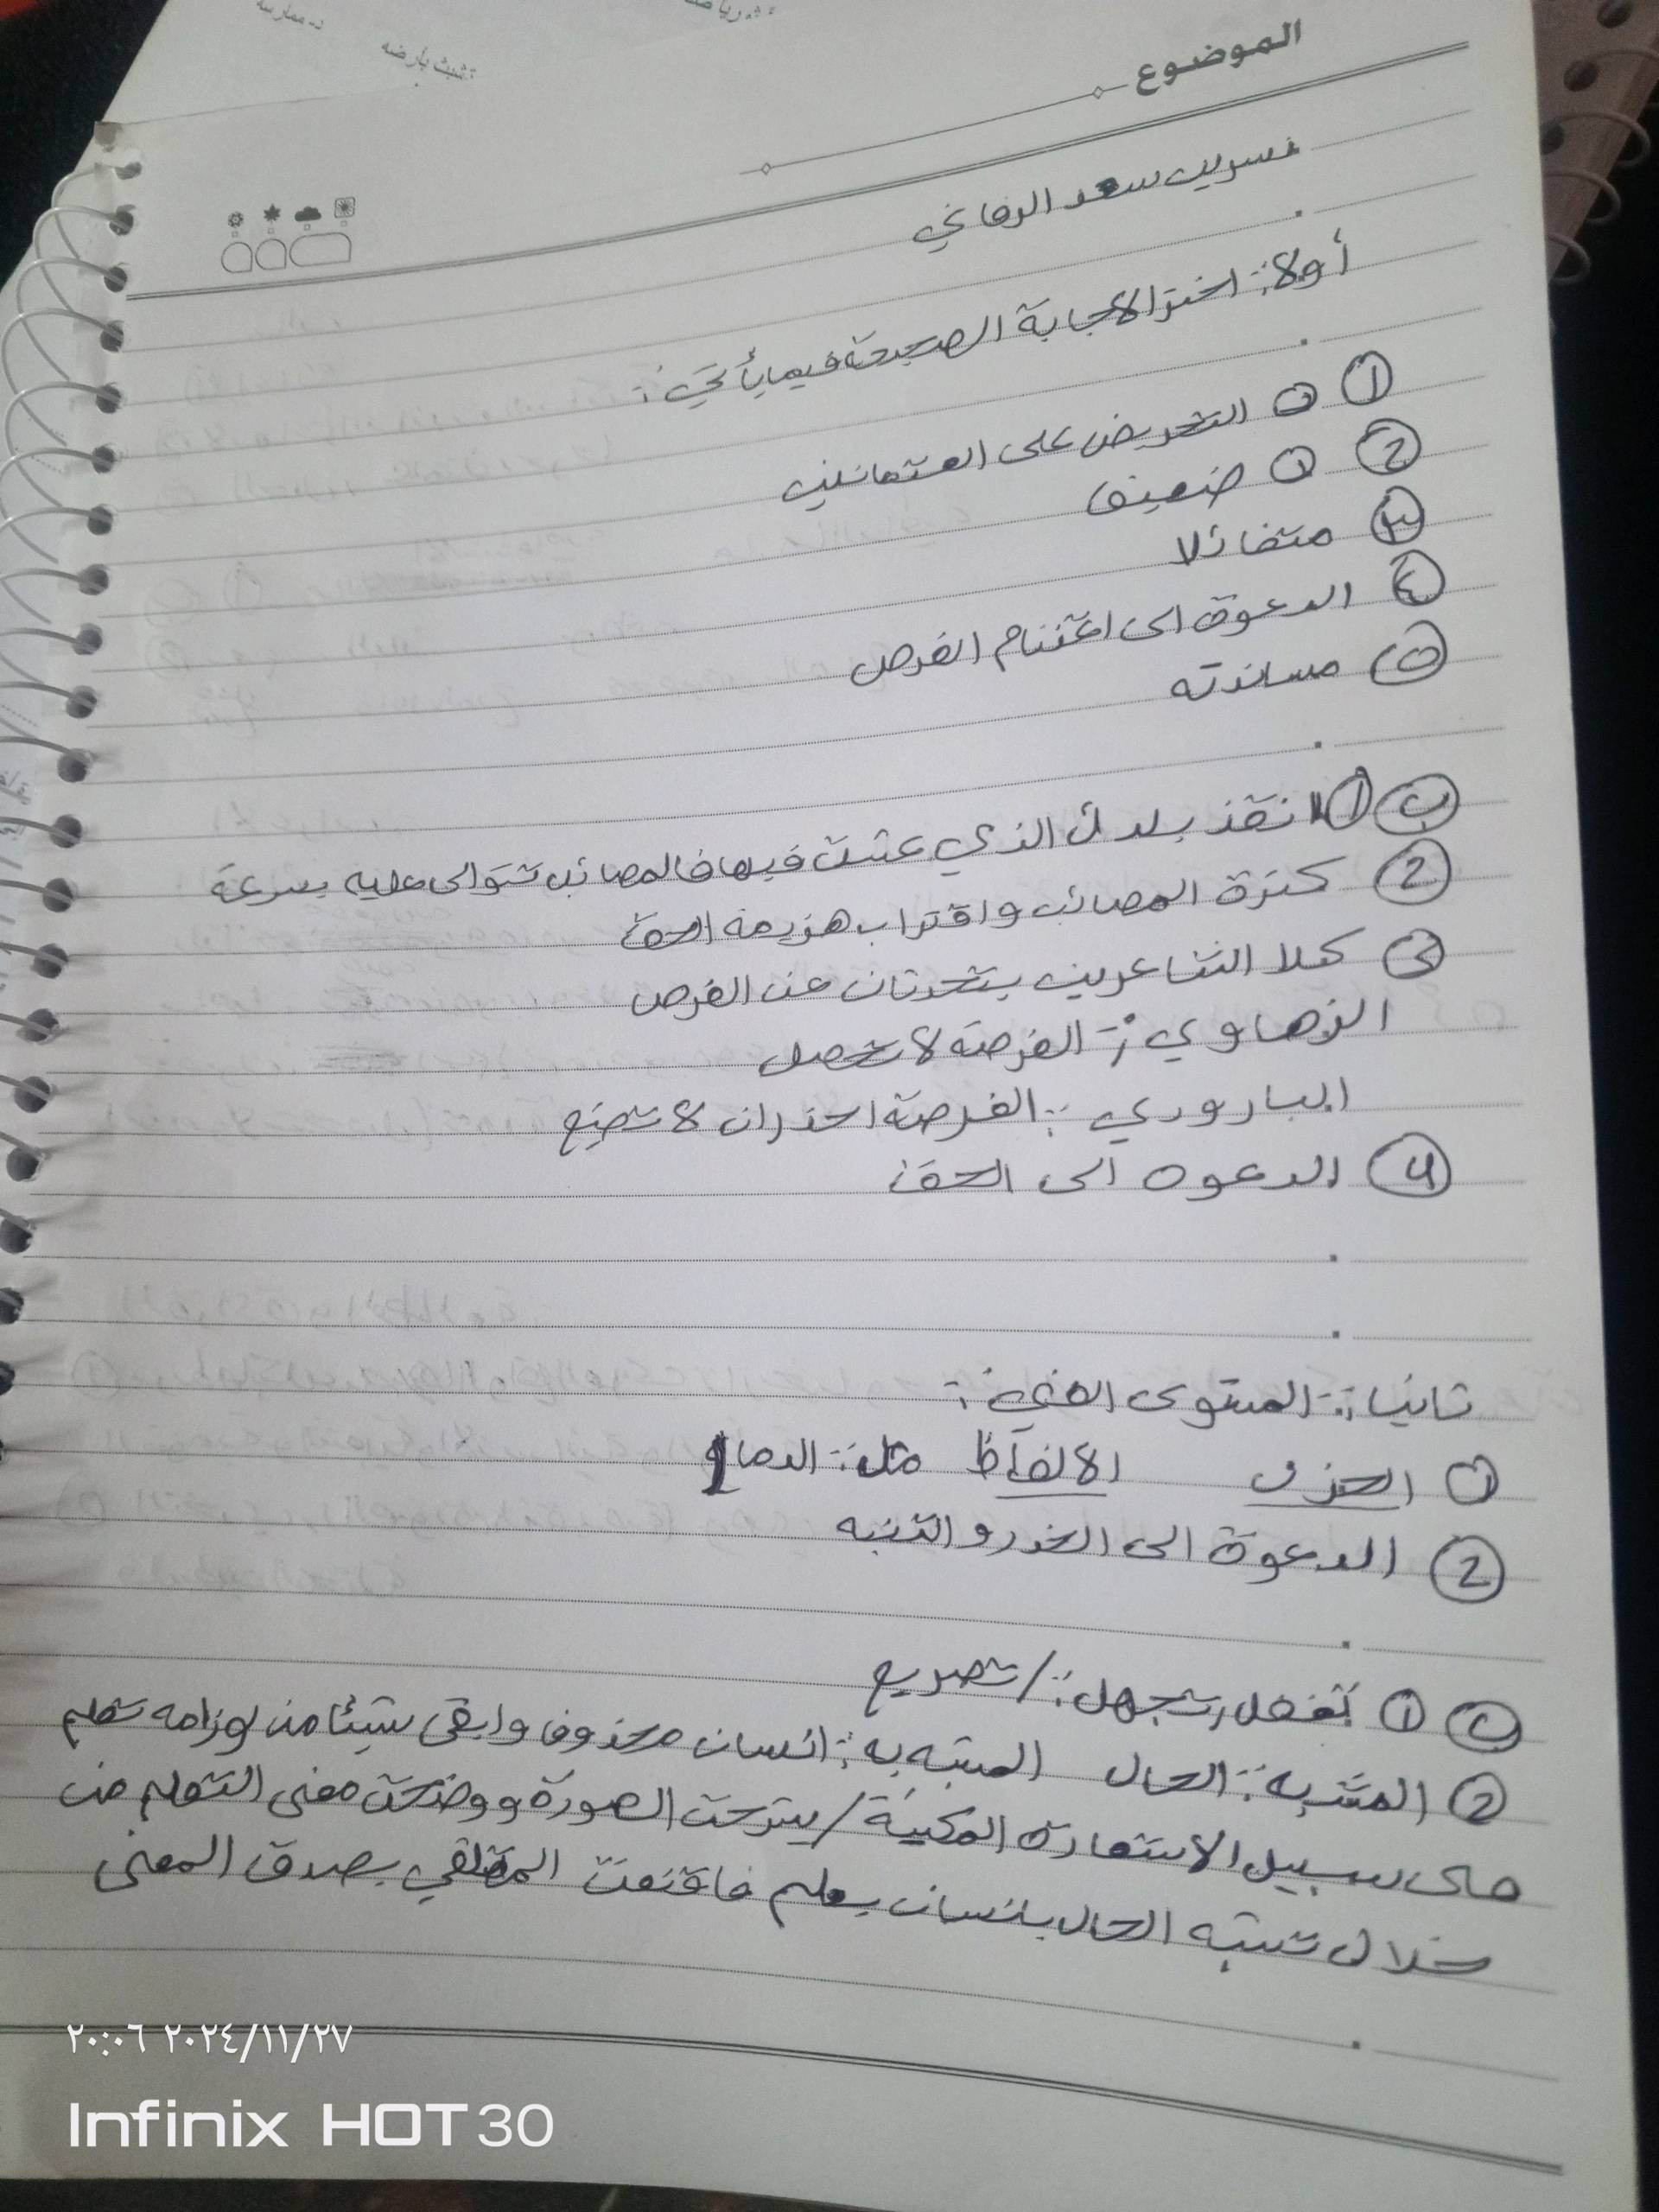 د- ممارسة
تشبث بأرضه
الموضوع
نسرين سعد الرفاعي
أولا: اختر الاجابة الصحيحة فيما يأتي :
① ① التحريض على العثمانيين
② ① ضعيف
③ متفائلا
④ الدعوة الى اغتنام الفرص
⑤ مساندته
ب ① انقذ بلدك الذي عشت فيها فالمصائب تتوالى عليه بسرعة
② كثرة المصائب واقتراب هزيمة الحق
③ كلا الشاعرين يتحدثان عن الفرص
الزهاوي :- الفرصة لا تحصل
البارودي :- الفرصة احذر ان لا تضيع
④ الدعوه الى الحق
ثانيا :- المستوى الفني :
① الحزن الالفاظ مثل :- الدمار
② الدعوة الى الحذر والتنبه
ب ① تغفل , تجهل :- / تصريع
② المشبه :- الحال المشبه به :- انسان محذوف وابقى شيئا من لوازمه تعلم
على سبيل الاستعارة المكنية / شرحت الصورة ووضحت معنى التعلم من
خلال تشبيه الحال بانسان يعلم فاقنعت المتلقي بصدق المعنى
٢٠:٠٦ ٢٠٢٤/١١/٢٧
Infinix HOT 30